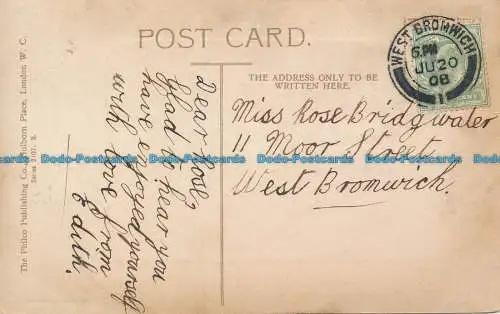 POST CARD.
THE ADDRESS ONLY TO BE
WRITTEN HERE.
WEST BROMWICH
6.PM
JU 20
08
1
Dear Rose,
Glad to hear you
have enjoyed yourself
with love from
Edith.
Miss Rose Bridgwater
11 Moor Street,
West Bromwich.
The Philco Publishing Co., Holborn Place, London, W. C.
Series
Dodo-Postcards Dodo-Postcards Dodo-Postcards Dodo-Postcards Dodo-Postcards